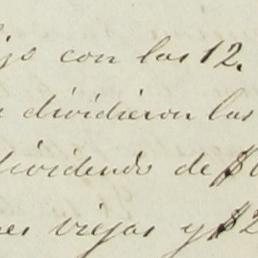 con las 12.
dividieron las
dividendo de $
viejas y $2